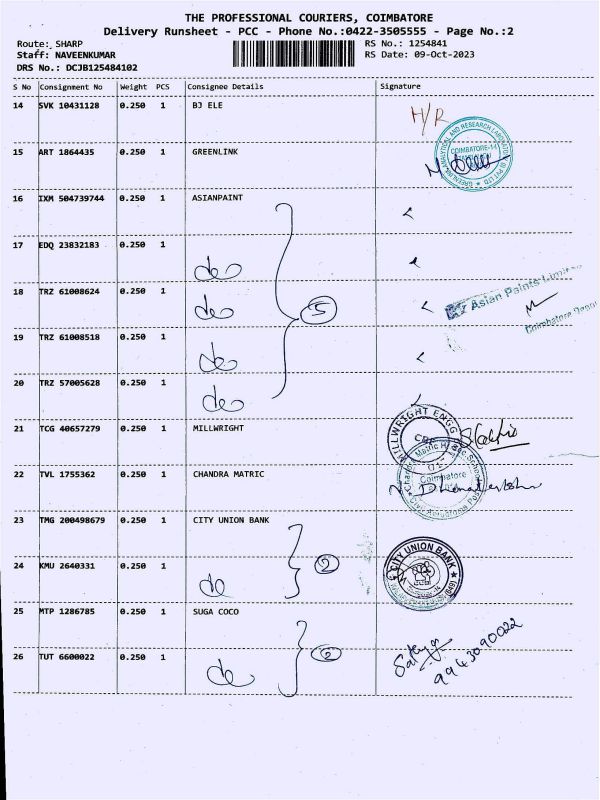 THE PROFESSIONAL COURIERS, COIMBATORE
Delivery Runsheet - PCC - Phone No.:0422-3505555 - Page No.:2
Route: SHARP RS No.: 1254841
Staff: NAVEENKUMAR RS Date: 09-Oct-2023
DRS No.: DCJB125484102
S No Consignment No Weight PCS Consignee Details Signature
14 SVK 10431128 0.250 1 BJ ELE H/R
15 ART 1864435 0.250 1 GREENLINK
GREENLINK ANALYTICAL AND RESEARCH LABORATORY PVT LTD
COIMBATORE-14
16 IXM 504739744 0.250 1 ASIANPAINT
17 EDQ 23832183 0.250 1
do
18 TRZ 61008624 0.250 1
do 5 Asian Paints Limited
Coimbatore Depot
19 TRZ 61008518 0.250 1
do
20 TRZ 57005628 0.250 1
do
21 TCG 40657279 0.250 1 MILLWRIGHT MILLWRIGHT ENGG
22 TVL 1755362 0.250 1 CHANDRA MATRIC
Coimbatore
23 TMG 200498679 0.250 1 CITY UNION BANK
24 KMU 2640331 0.250 1 2 CITY UNION BANK
do
25 MTP 1286785 0.250 1 SUGA COCO
26 TUT 6600022 0.250 1 2 Sathya
do 9943090022